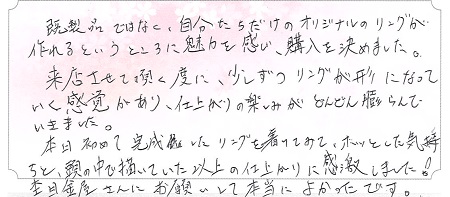 既製品ではなく、自分たちだけのオリジナルのリングが
作れるというところに魅力を感じ、購入を決めました。
来店させて頂く度に、少しずつリングが形になって
いく感覚があり、仕上がりの楽しみがどんどん膨らんで
いきました。
本日初めて完成したリングを着けてみて、ホッとした気持
ちと、頭の中で描いていた以上の仕上がりに感激しました!
杢目金屋さんにお願いして本当によかったです。